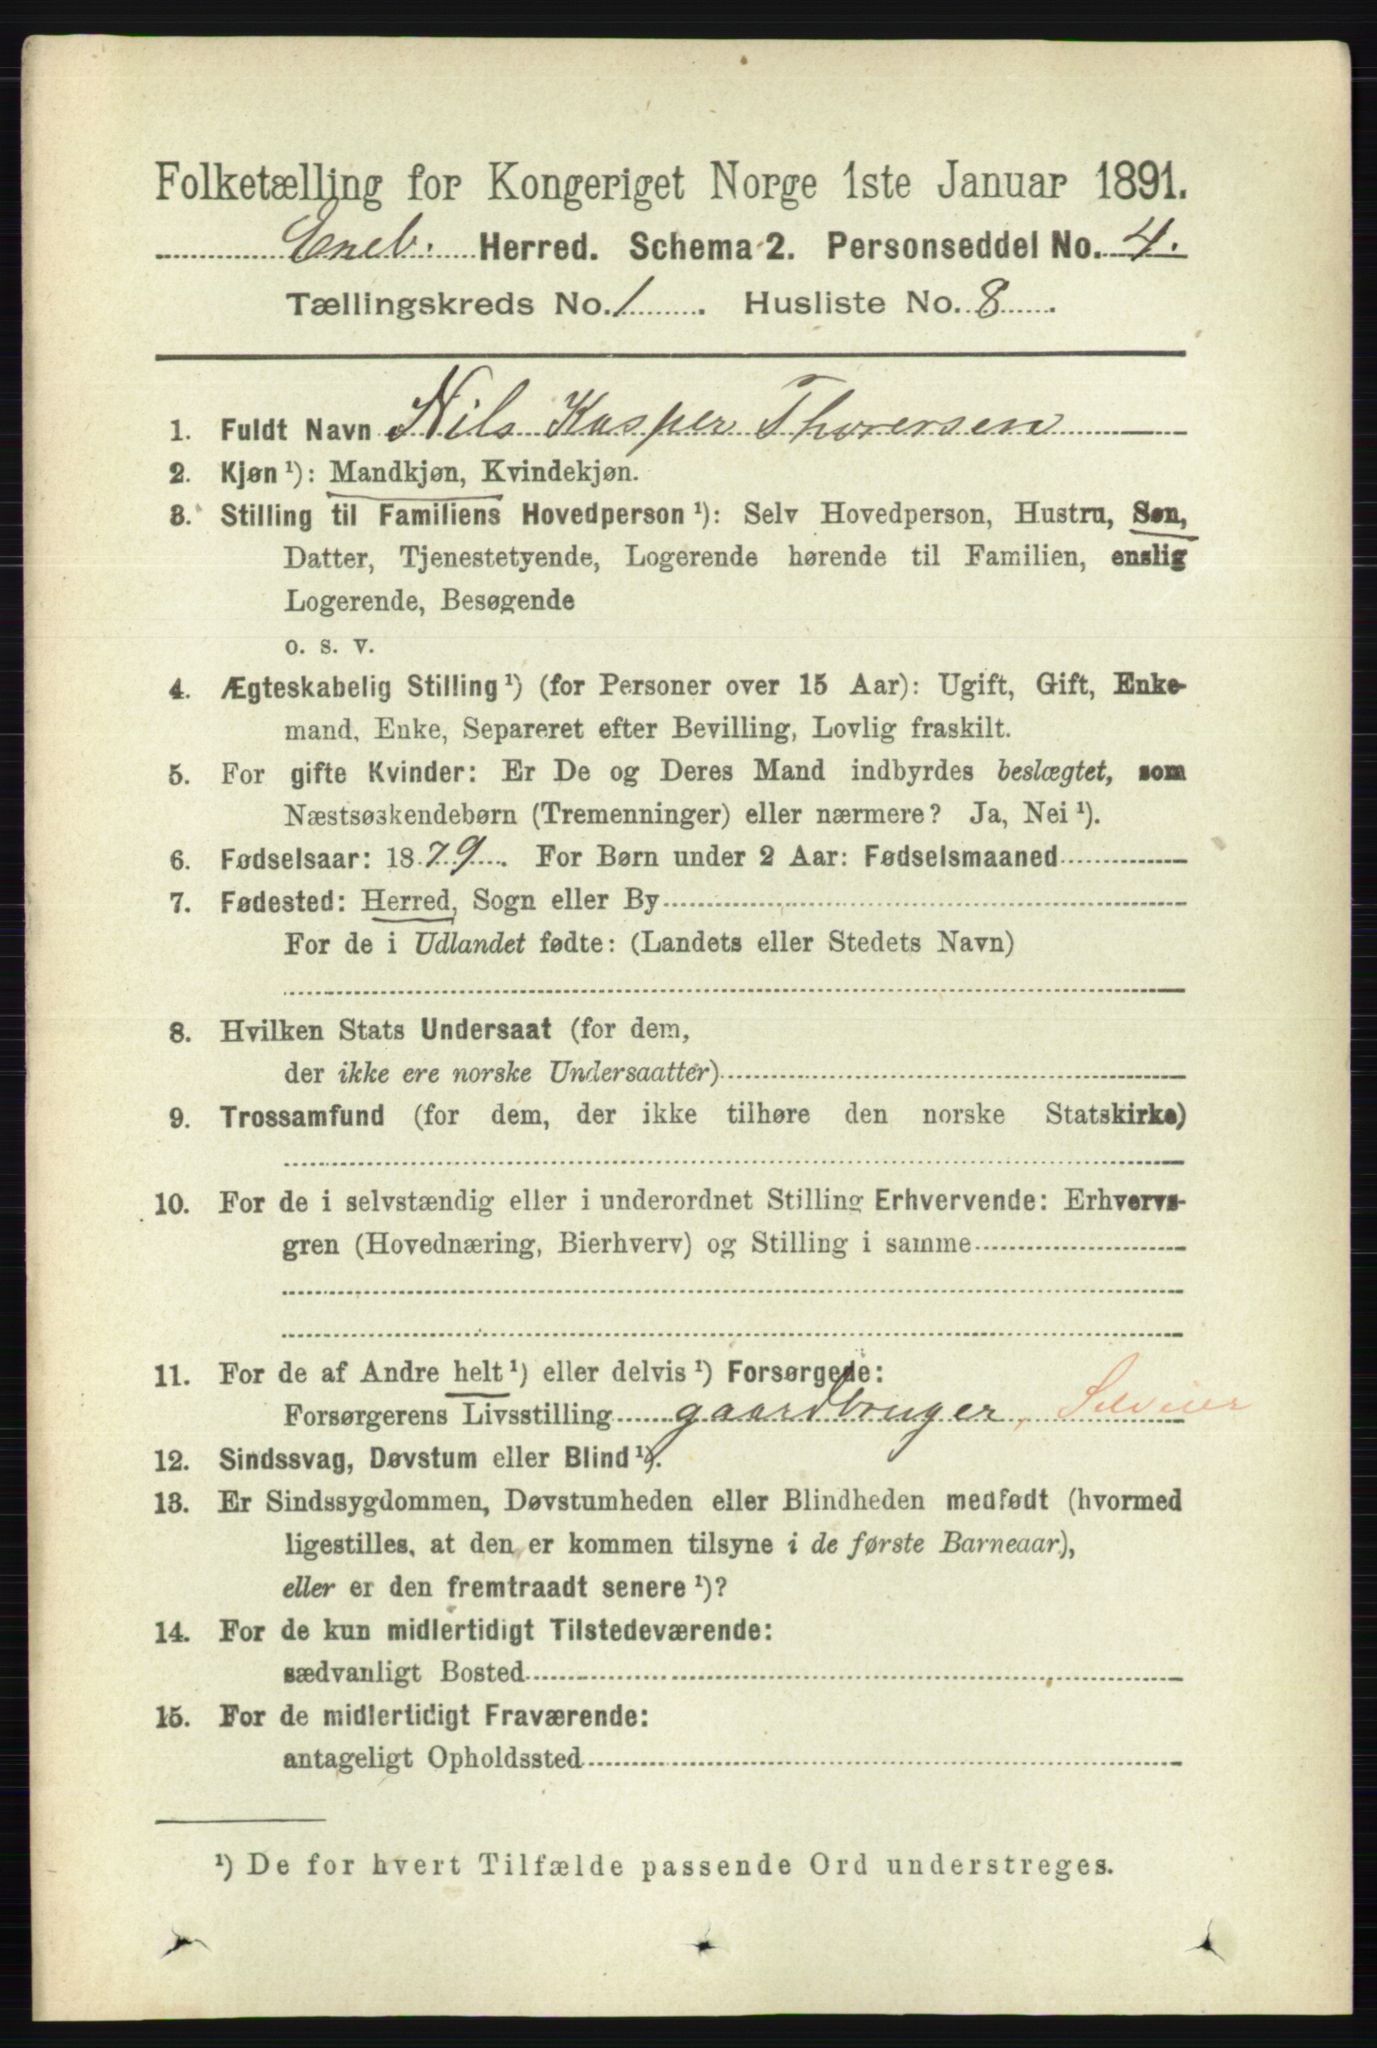 Folketælling for Kongeriget Norge 1ste Januar 1891.
Eneb. Herred. Schema 2. Personseddel No. 4.
Tællingskreds No. 1. Husliste No. 8.
1. Fuldt Navn Nils Kasper Thoresen
2. Kjøn ¹): Mandkjøn, Kvindekjøn.
3. Stilling til Familiens Hovedperson ¹): Selv Hovedperson, Hustru, Søn,
Datter, Tjenestetyende, Logerende hørende til Familien, enslig
Logerende, Besøgende
o. s. v.
4. Ægteskabelig Stilling ¹) (for Personer over 15 Aar): Ugift, Gift, Enke-
mand, Enke, Separeret efter Bevilling, Lovlig fraskilt.
5. For gifte Kvinder: Er De og Deres Mand indbyrdes beslægtet, som
Næstsøskendebørn (Tremenninger) eller nærmere? Ja, Nei ¹).
6. Fødselsaar: 1879. For Børn under 2 Aar: Fødselsmaaned
7. Fødested: Herred, Sogn eller By
For de i Udlandet fødte: (Landets eller Stedets Navn)
8. Hvilken Stats Undersaat (for dem,
der ikke ere norske Undersaatter)
9. Trossamfund (for dem, der ikke tilhøre den norske Statskirke)
10. For de i selvstændig eller i underordnet Stilling Erhvervende: Erhvervs-
gren (Hovednæring, Bierhverv) og Stilling i samme
11. For de af Andre helt ¹) eller delvis ¹) Forsørgede:
Forsørgerens Livsstilling gaardbruger, Selveier
12. Sindssvag, Døvstum eller Blind ¹).
13. Er Sindssygdommen, Døvstumheden eller Blindheden medfødt (hvormed
ligestilles, at den er kommen tilsyne i de første Barneaar),
eller er den fremtraadt senere ¹)?
14. For de kun midlertidigt Tilstedeværende:
sædvanligt Bosted
15. For de midlertidigt Fraværende:
antageligt Opholdssted
¹) De for hvert Tilfælde passende Ord understreges.